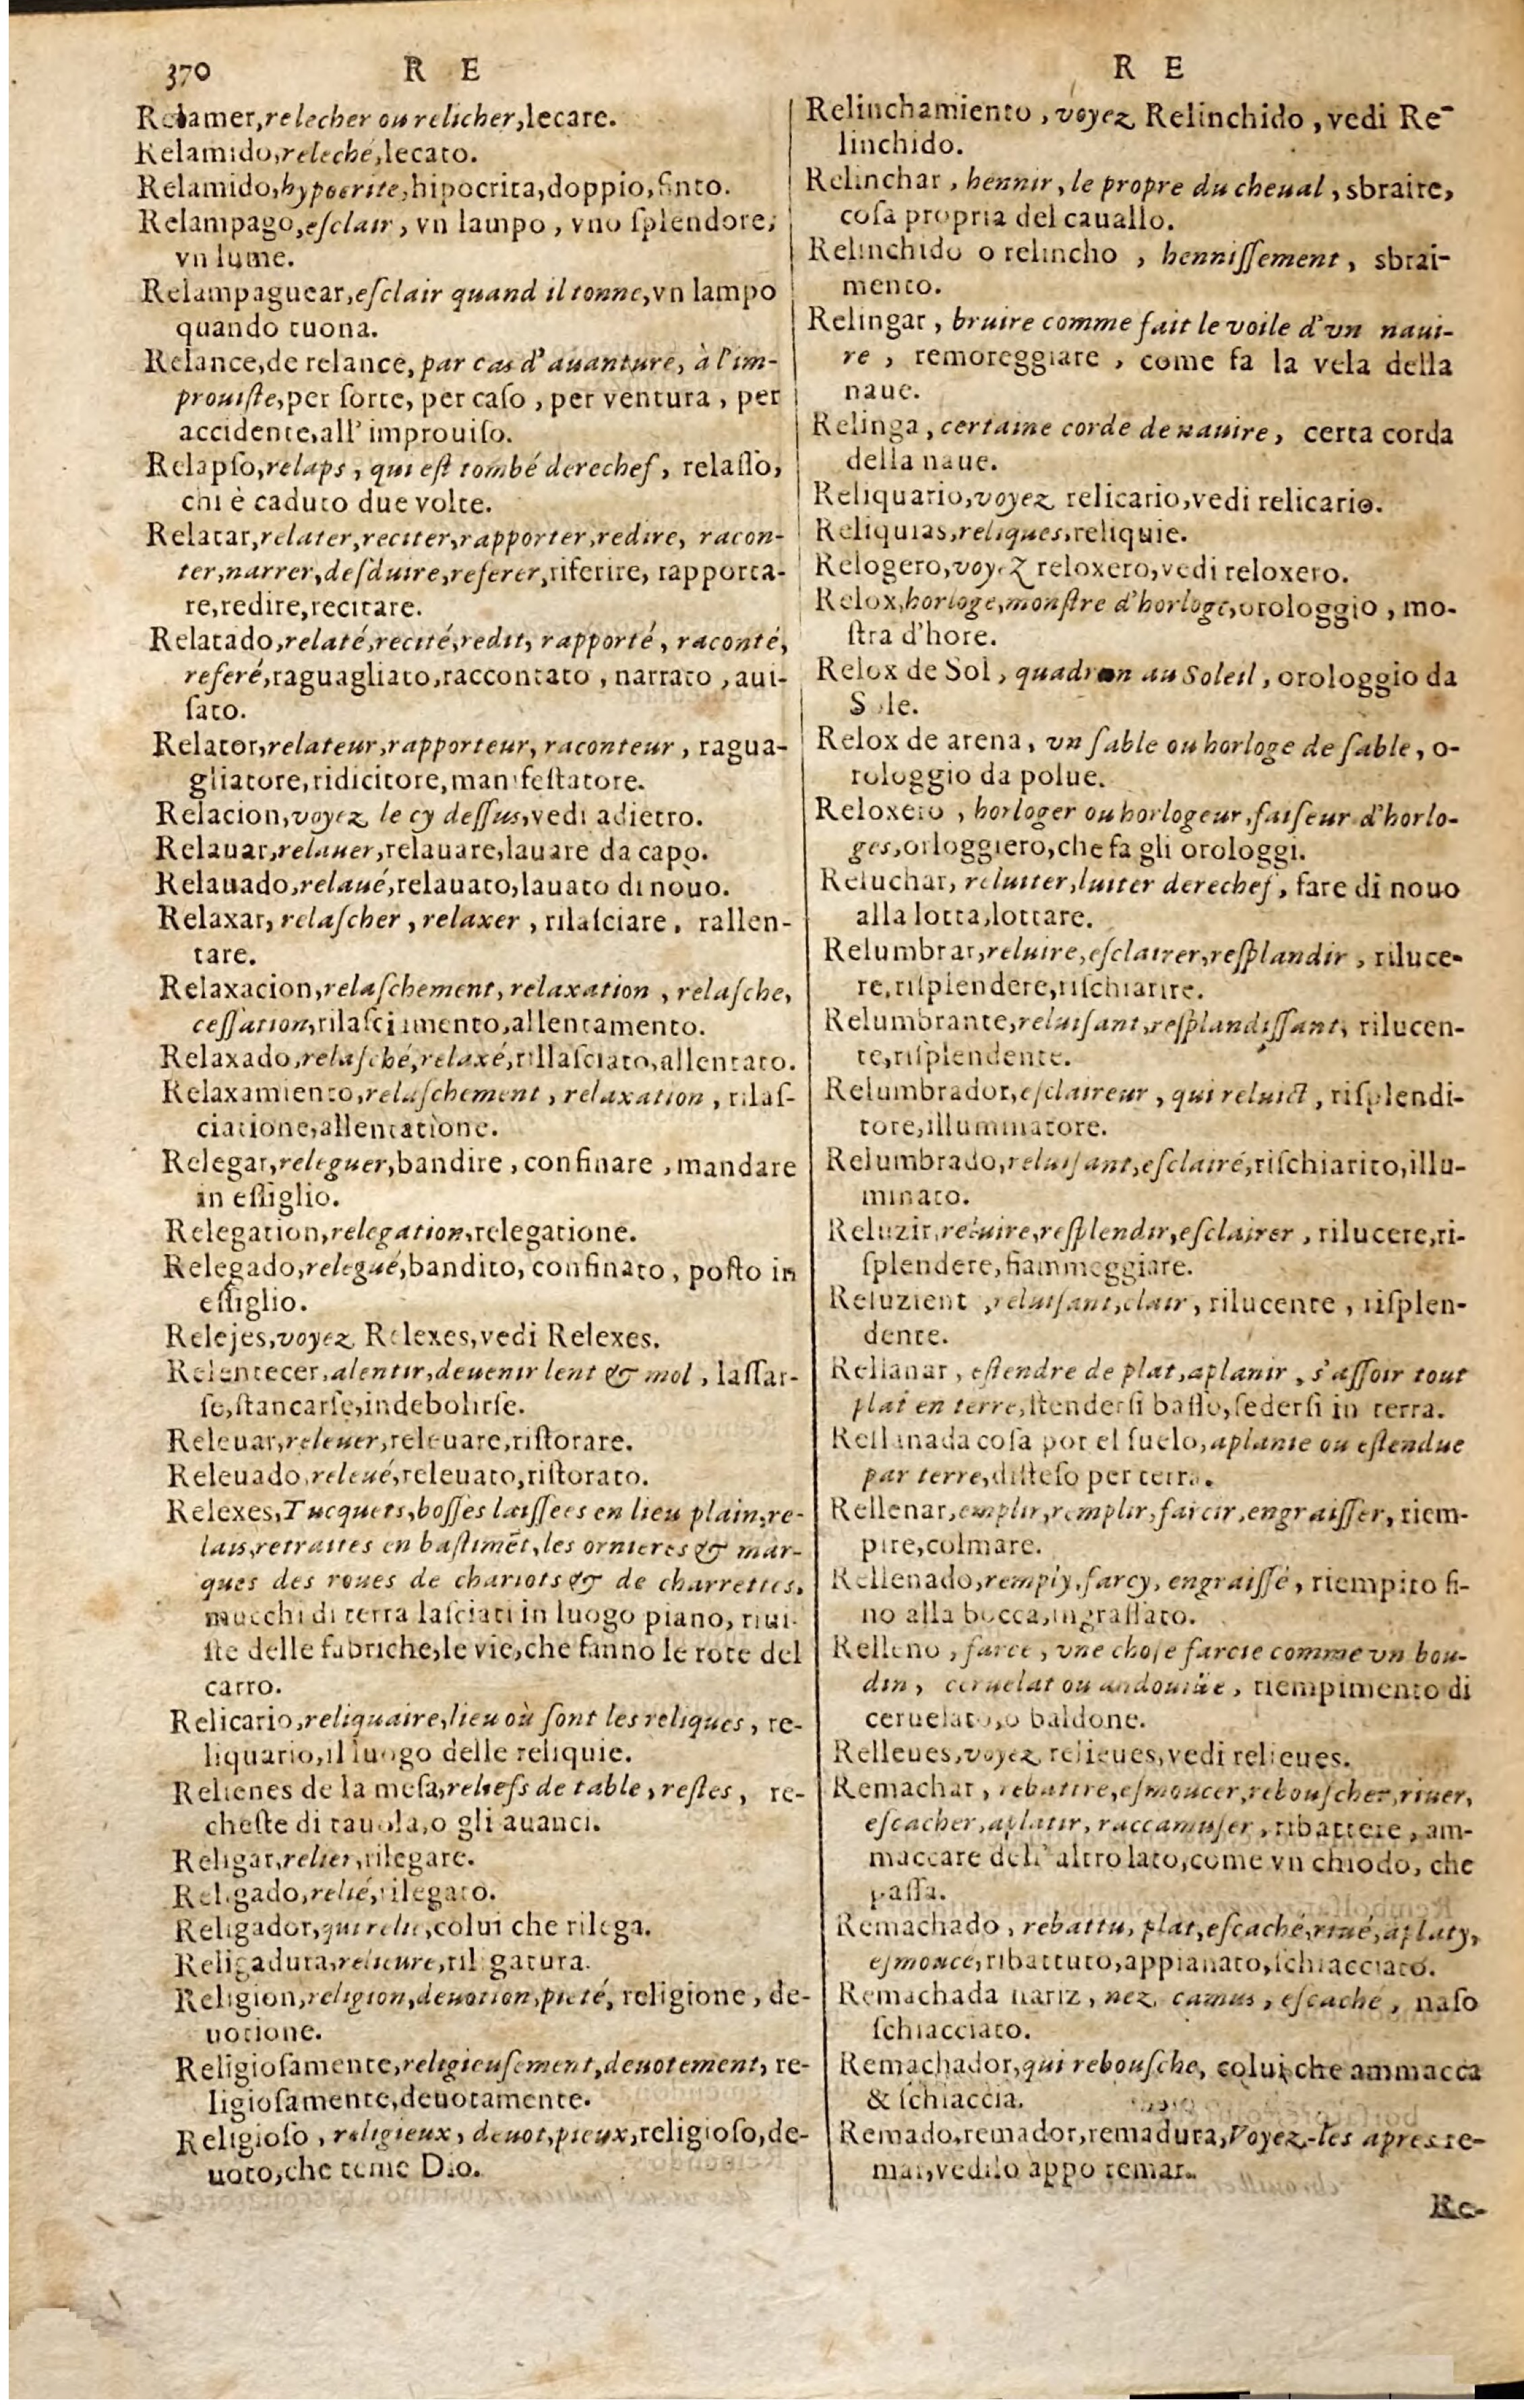 370 R E
Relamer, relecher ou relicher, lecare.
Relamido, releché, lecato.
Relamido, hypocrite, hipocrita, doppio, finto.
Relampago, eſclair, vn lampo, vno ſplendore,
vn lume.
Relampaguear, eſclair quand il tonne, vn lampo
quando tuona.
Relance, de relance, par cas d'auanture, à l'im-
prouiſte, per ſorte, per caſo, per ventura, per
accidente, all' improuiſo.
Relapſo, relaps, qui eſt tombé derechef, relaſſo,
chi è caduto due volte.
Relatar, relater, reciter, rapporter, redire, racon-
ter, narrer, deſduire, referer, riferire, rapporta-
re, redire, recitare.
Relatado, relaté, recité, redit, rapporté, raconté,
referé, raguagliato, raccontato, narrato, aui-
ſato.
Relator, relateur, rapporteur, raconteur, ragua-
gliatore, ridicitore, manifeſtatore.
Relacion, voyez le cy deſſus, vedi adietro.
Relauar, relauer, relauare, lauare da capo.
Relauado, relaué, relauato, lauato di nòuo.
Relaxar, relaſcher, relaxer, rilaſciare, rallen-
tare.
Relaxacion, relaſchement, relaxation, relaſche,
ceſſation, rilaſciamento, allentamento.
Relaxado, relaſché, relaxé, rillaſciato, allentato.
Relaxamiento, relaſchement, relaxation, rilaſ-
ciatione, allentatione.
Relegar, releguer, bandire, confinare, mandare
in eſſiglio.
Relegation, relegation, relegatione.
Relegado, relegué, bandito, confinato, poſto in
eſſiglio.
Relejes, voyez Relexes, vedi Relexes.
Relentecer, alentir, deuenir lent & mol, laſſar-
ſe, ſtancarſe, indebolirſe.
Releuar, releuer, releuare, riſtorare.
Releuado, releué, releuato, riſtorato.
Relexes, Tucquets, boſſes laiſſees en lieu plain, re-
lais, retraites en baſtimēt, les ornieres & mar-
ques des roues de chariots & de charrettes,
mucchi di terra laſciati in luogo piano, riui-
ſte delle fabriche, le vie, che fanno le rote del
carro.
Relicario, reliquaire, lieu où ſont les reliques, re-
liquario, il luogo delle reliquie.
Relienes de la meſa, reliefs de table, reſtes, re-
cheſte di tauola, o gli auanci.
Religar, relier, rilegare.
Religado, relié, rilegato.
Religador, qui relie, colui che rilega.
Religadura, relieure, riligatura.
Religion, religion, deuotion, pieté, religione, de-
uotione.
Religioſamente, religieuſement, deuotement, re-
ligioſamente, deuotamente.
Religioſo, religieux, deuot, pieux, religioſo, de-
uoto, che teme Dio.
R E
Relinchamiento, voyez Relinchido, vedi Re-
linchido.
Relinchar, hennir, le propre du cheual, sbraire,
coſa propria del cauallo.
Relinchido o relincho, henniſſement, sbrai-
mento.
Relingar, bruire comme fait le voile d'vn naui-
re, remoreggiare, come fa la vela della
naue.
Relinga, certaine corde de nauire, certa corda
della naue.
Reliquario, voyez relicario, vedi relicario.
Reliquias, reliques, reliquie.
Relogero, voyez reloxero, vedi reloxero.
Relox, horloge, monſtre d'horloge, orologgio, mo-
ſtra d'hore.
Relox de Sol, quadran au Soleil, orologgio da
Sole.
Relox de arena, vn ſable ou horloge de ſable, o-
rologgio da polue.
Reloxero, horloger ou horlogeur, faiſeur d'horlo-
ges, orloggiero, che fa gli orologgi.
Reluchar, reluiter, luiter derechef, fare di nouo
alla lotta, lottare.
Relumbrar, reluire, eſclairer, reſplandir, riluce-
re, riſplendere, riſchiarire.
Relumbrante, reluiſant, reſplandiſſant, rilucen-
te, riſplendente.
Relumbrador, eſclaireur, qui reluict, riſplendi-
tore, illuminatore.
Relumbrado, reluiſant, eſclairé, riſchiarito, illu-
minato.
Reluzir, reluire, reſplendir, eſclairer, rilucere, ri-
ſplendere, fiammeggiare.
Reluzient, reluiſant, clair, rilucente, riſplen-
dente.
Rellanar, eſtendre de plat, aplanir, s'aſſoir tout
plat en terre, ſtenderſi baſſo, ſederſi in terra.
Rellanada coſa por el ſuelo, aplanie ou eſtendue
par terre, diſteſo per terra.
Rellenar, emplir, remplir, farcir, engraiſſer, riem-
pire, colmare.
Rellenado, remply, farcy, engraiſſé, riempito fi-
no alla bocca, ingraſſato.
Relleno, farce, vne choſe farcie comme vn bou-
din, ceruelat ou andouille, riempimento di
ceruelato, o baldone.
Relleues, voyez relieues, vedi relieues.
Remachar, rebattre, eſmoucer, rebouſcher, riuer,
eſcacher, aplatir, raccamuſer, ribattere, am-
maccare dell' altro lato, come vn chiodo, che
paſſa.
Remachado, rebattu, plat, eſcaché, riué, aplaty,
eſmoucé, ribattuto, appianato, ſchiacciato.
Remachada nariz, nez camus, eſcaché, naſo
ſchiacciato.
Remachador, qui rebouſche, colui che ammacca
& ſchiaccia.
Remado, remador, remadura, Voyez-les apres re-
mar, vedilo appo remar.
Re-